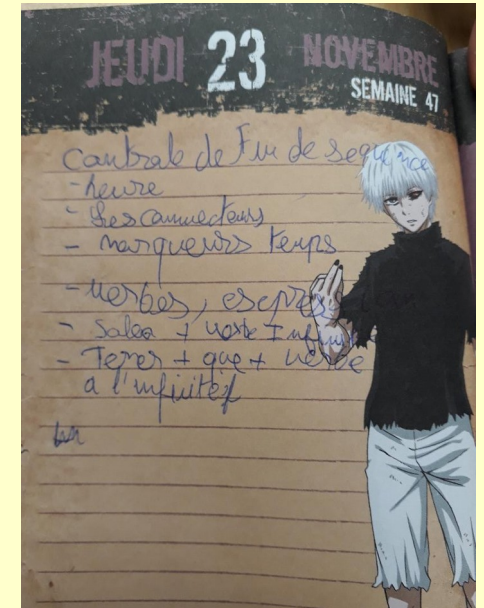 JEUDI 23 NOVEMBRE
SEMAINE 47
Controle de Fin de sequence
- heure
- Les connecteurs
- marqueurs temps
- verbes,
- + verbe Infinitif
- Tener + que + verbe
a l'infinitif